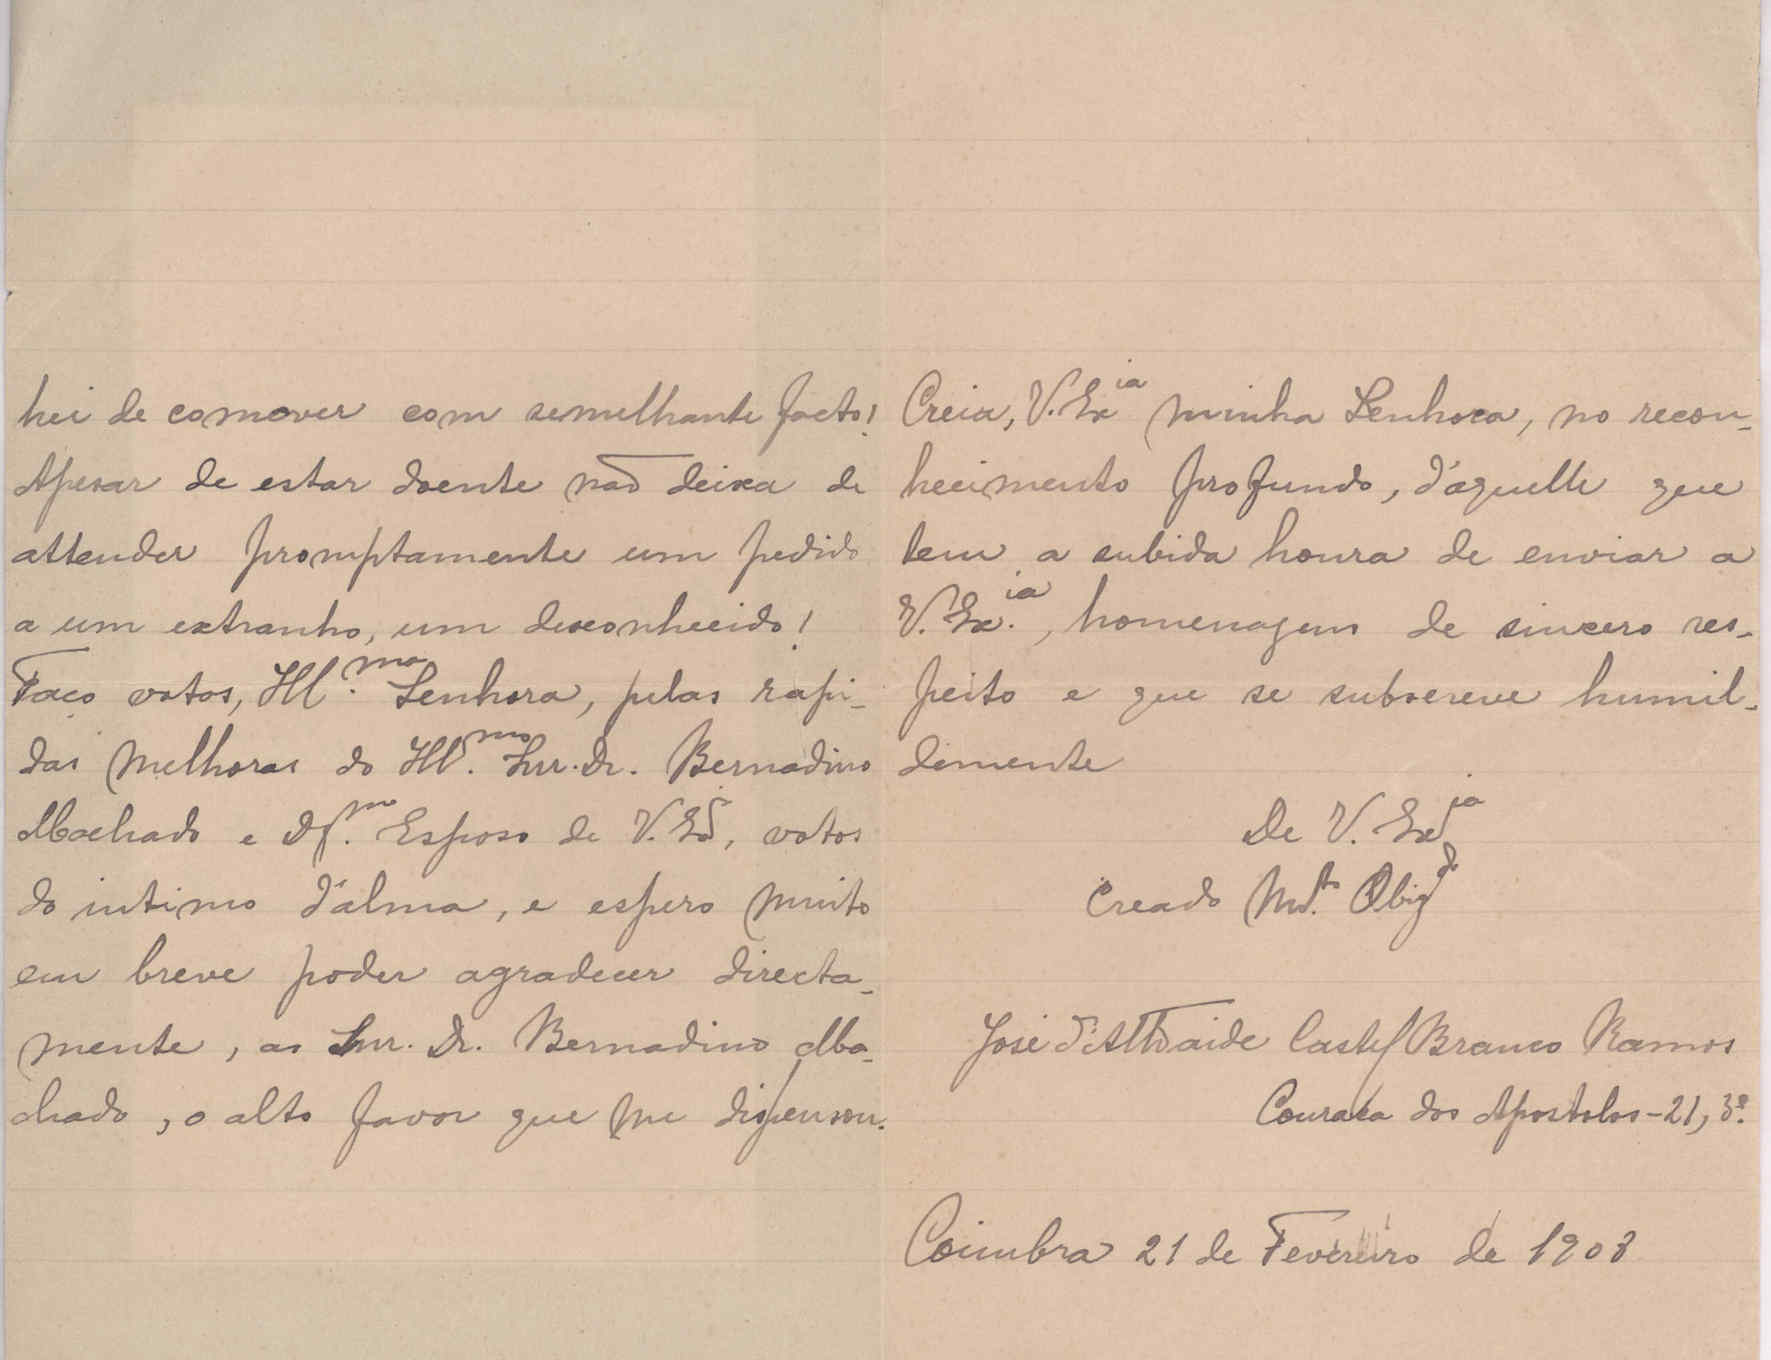 hei de comover com semelhante facto!
Apesar de estar doente não deixa de
attender promptamente um pedido
a um extranho, um desconhecido!
Faço votos, Ill.ma Senhora, pelas rapi-
das melhoras do Ill.mo Snr. Dr. Bernadino
Machado e D.mo Esposo de V. Exª, votos
do intimo d'alma, e espero muito
em breve poder agradecer directa-
mente, ao Snr. Dr. Bernadino Ma-
chado, o alto favor que me dispensou.
Creia, V. Ex.ia minha Senhora, no recon-
hecimento profundo, d'aquelle que
tem a subida honra de enviar a
V. Ex.ia, homenagens de sincero res-
peito e que se subscreve humil-
demente
De V. Ex.ia
Creado M.to Obig.do
José d'Athaide Castel Branco Ramos
Couraça dos Apostolos - 21, 3º.
Coimbra 21 de Fevereiro de 1908